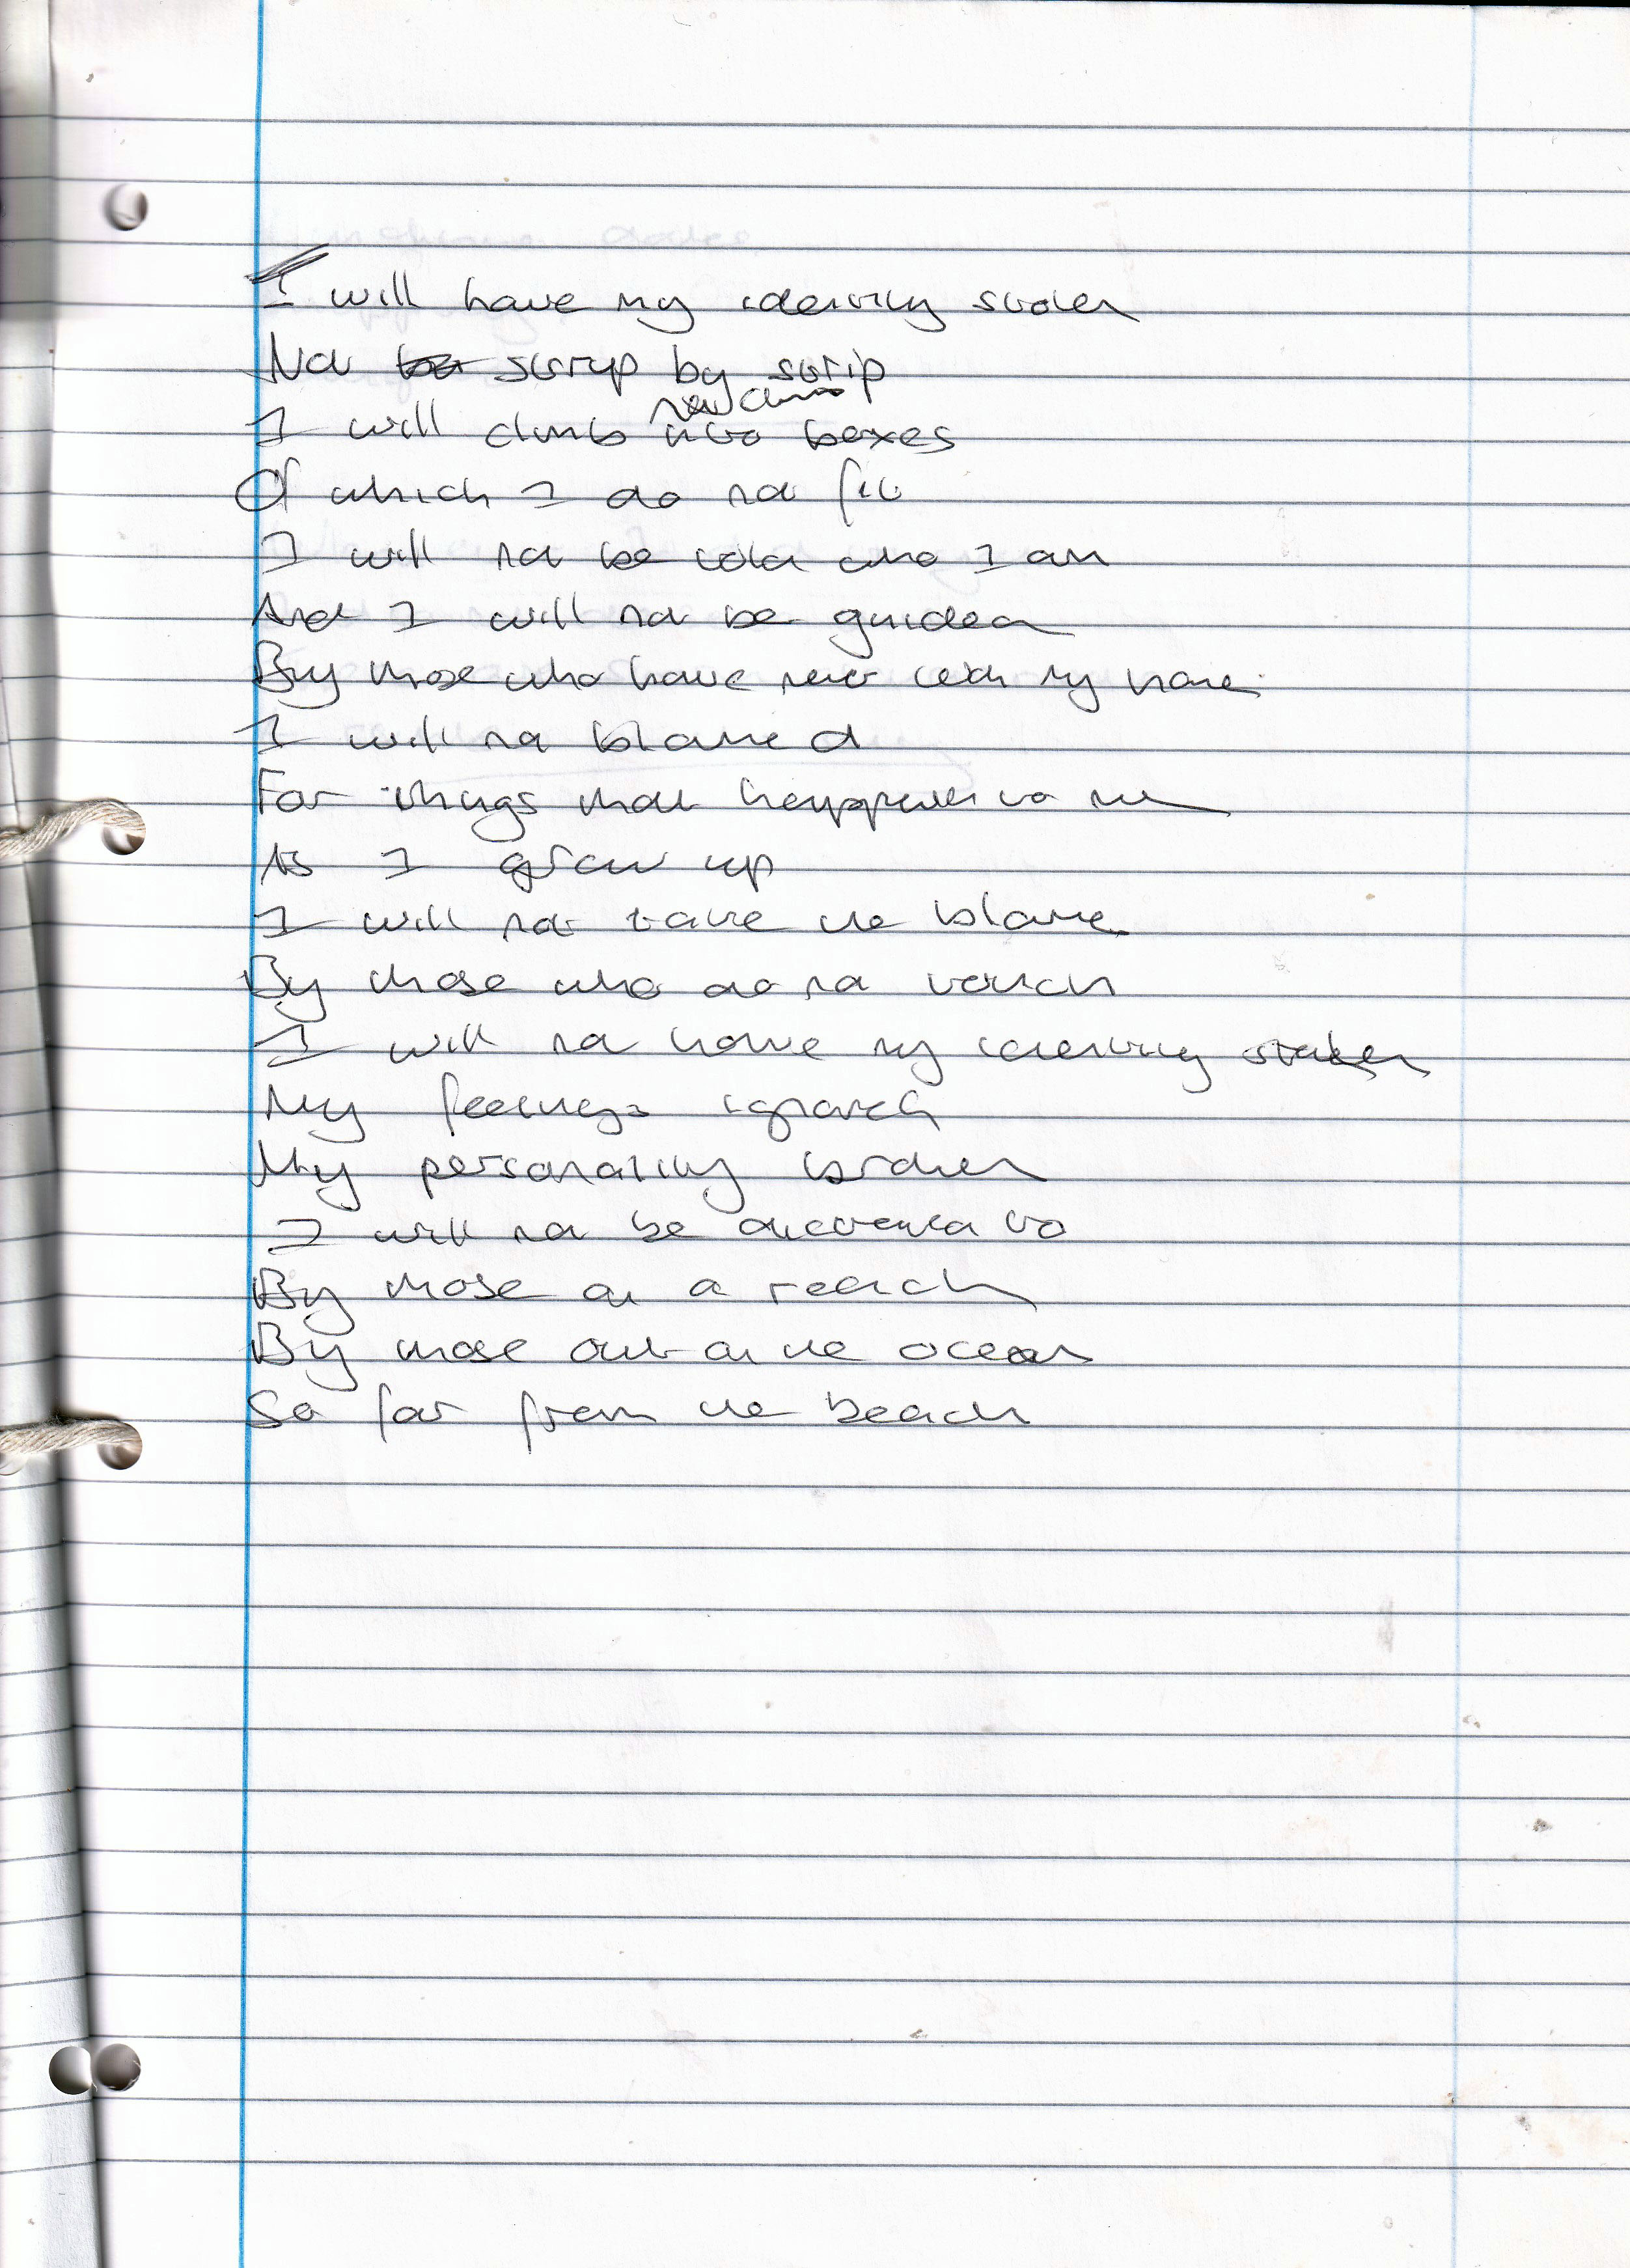 I will have my identity stolen
Not strip by strip
I will not climb into boxes
Of which I do not fit
I will not be told who I am
And I will not be guided
By those who have never held my hand
I will not blamed
For things that happened to me
As I grew up
I will not take the blame
By those who do not touch
I will not have my identity stolen
My feelings ignored
My personality broken
I will not be dictated to
By those on a reach
By those out on the ocean
So far from the beach